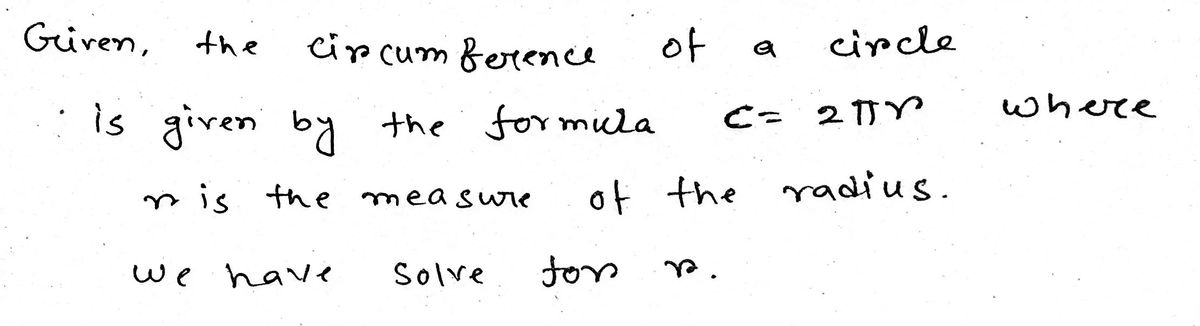 Given, the circumference of a circle
is given by the formula C = 2πr where
r is the measure of the radius.
we have solve for r.